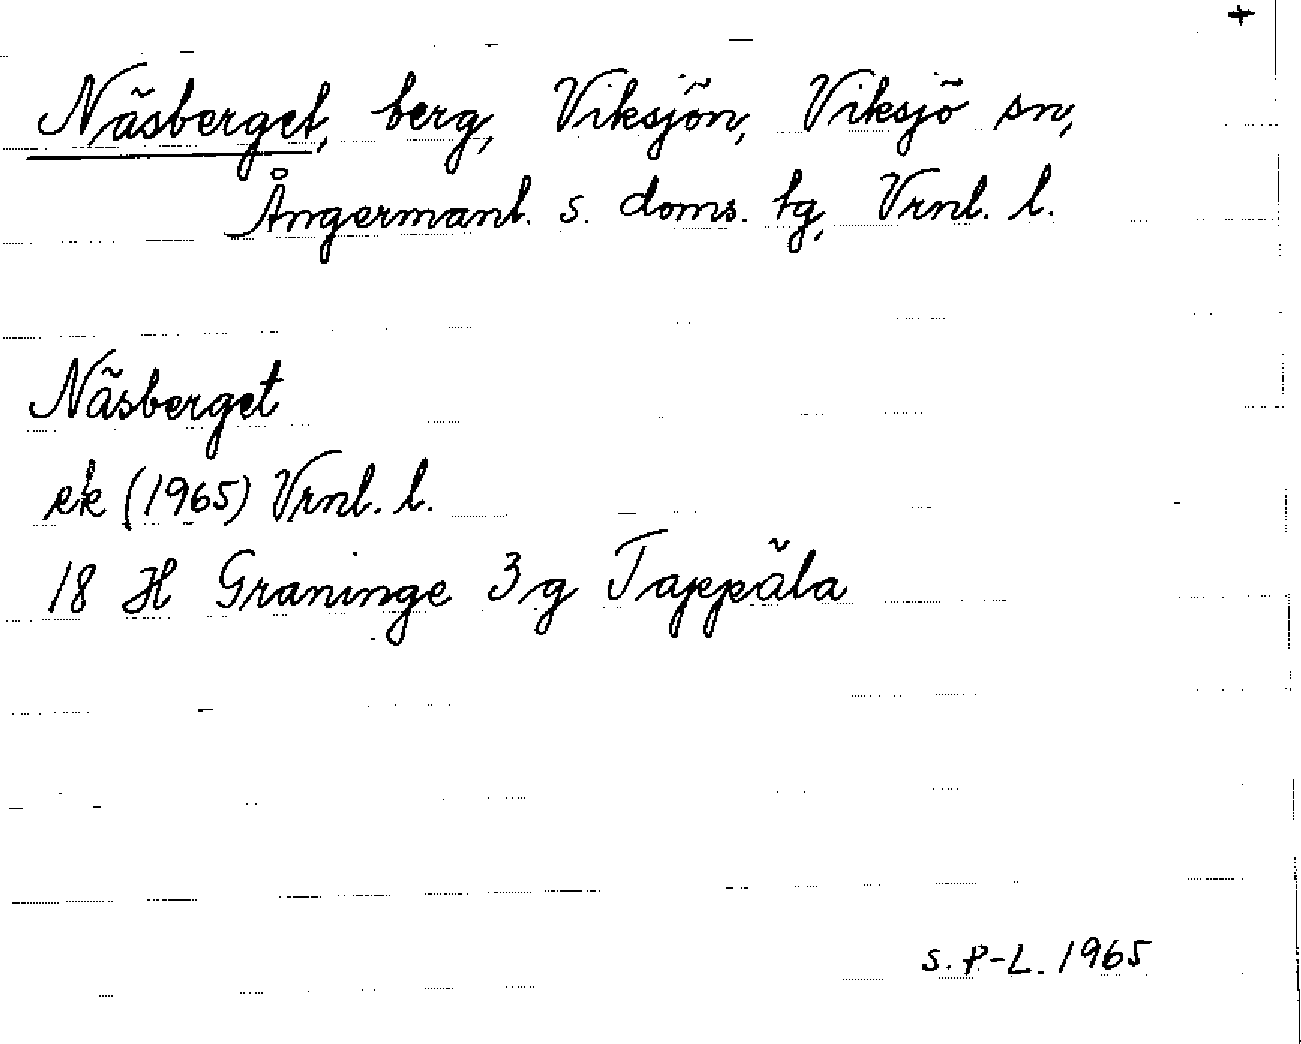 +
Näsberget, berg, Viksjön, Viksjö sn,
Ångermanl. s. doms. tg, Vrnl. l.
Näsberget
ek (1965) Vrnl. l.
18 H Graninge 3 g Tappäla
S. P-L. 1965